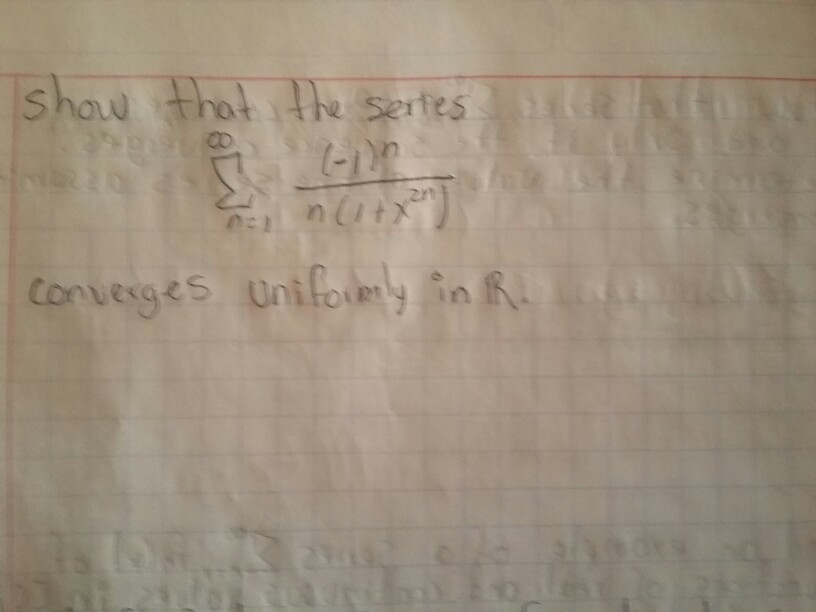 show that the series
∞
Σ (-1)^n / n(1+x^{2n})
n=1
converges uniformly in ℝ.